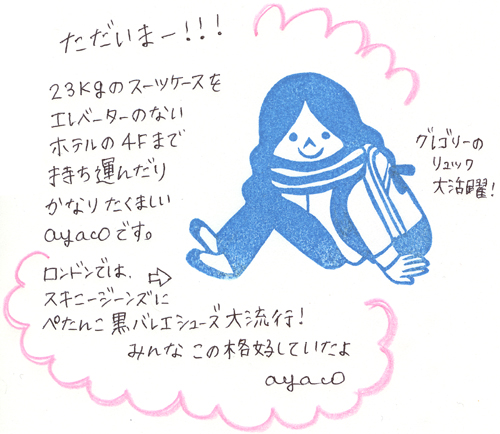 ただいまー!!!
23Kgのスーツケースを
エレベーターのない
ホテルの4Fまで
持ち運んだり
かなりたくましい
ayacoです。
グレゴリーの
リュック
大活躍!
ロンドンでは、
スキニージーンズに
ぺたんこ黒バレエシューズ大流行!
みんなこの格好していたよ
ayaco